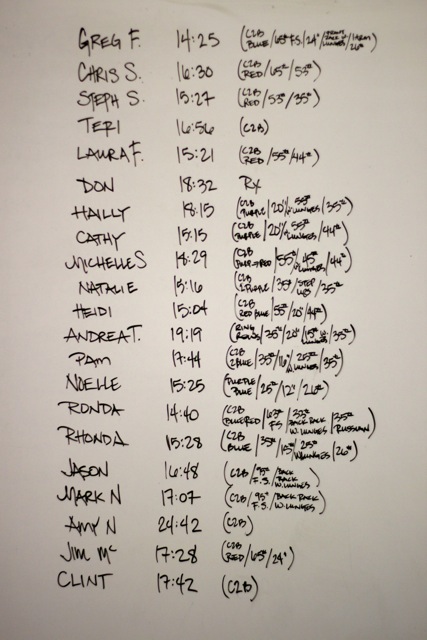 GREG F. 14:25 (C2B BLUE/65# F.S./24"/FRONT RACK W. LUNGES/1 ARM 26#)
CHRIS S. 16:30 (C2B RED/65#/53#)
STEPH S. 15:27 (C2B RED/53#/35#)
TERI 16:56 (C2B)
LAURA F. 15:21 (C2B RED/55#/44#)
DON 18:32 Rx
HAILLY 18:15 (C2B PURPLE/20"/55# W. LUNGES/35#)
CATHY 15:15 (C2B PURPLE/20"/55# W. LUNGES/44#)
MICHELLE S 18:29 (C2B PURP+RED/55#/45# W. LUNGES/44#)
NATALIE 15:16 (C2B 2 PURPLE/35#/STEP UPS/35#)
HEIDI 15:04 (C2B RED BLUE/55#/20"/44#)
ANDREA T. 19:19 (RING ROWS/35#/20"/15# W. LUNGES/35#)
PAM 17:44 (C2B 2 BLUE/35#/16"/25# W. LUNGES/35#)
NOELLE 15:25 (PURPLE BLUE/25#/12"/26#)
RONDA 14:40 (C2B BLUE RED/63# FS/33# BACK RACK W. LUNGES/35# RUSSIAN)
RHONDA 15:28 (C2B BLUE/35#/15#/25# W. LUNGES/26#)
JASON 16:48 (C2B/95# F.S./BACK RACK W. LUNGES)
MARK N 17:07 (C2B/95# F.S./BACK RACK W. LUNGES)
AMY N 24:42 (C2B)
JIM Mc 17:28 (C2B RED/65#/24")
CLINT 17:42 (C2B)